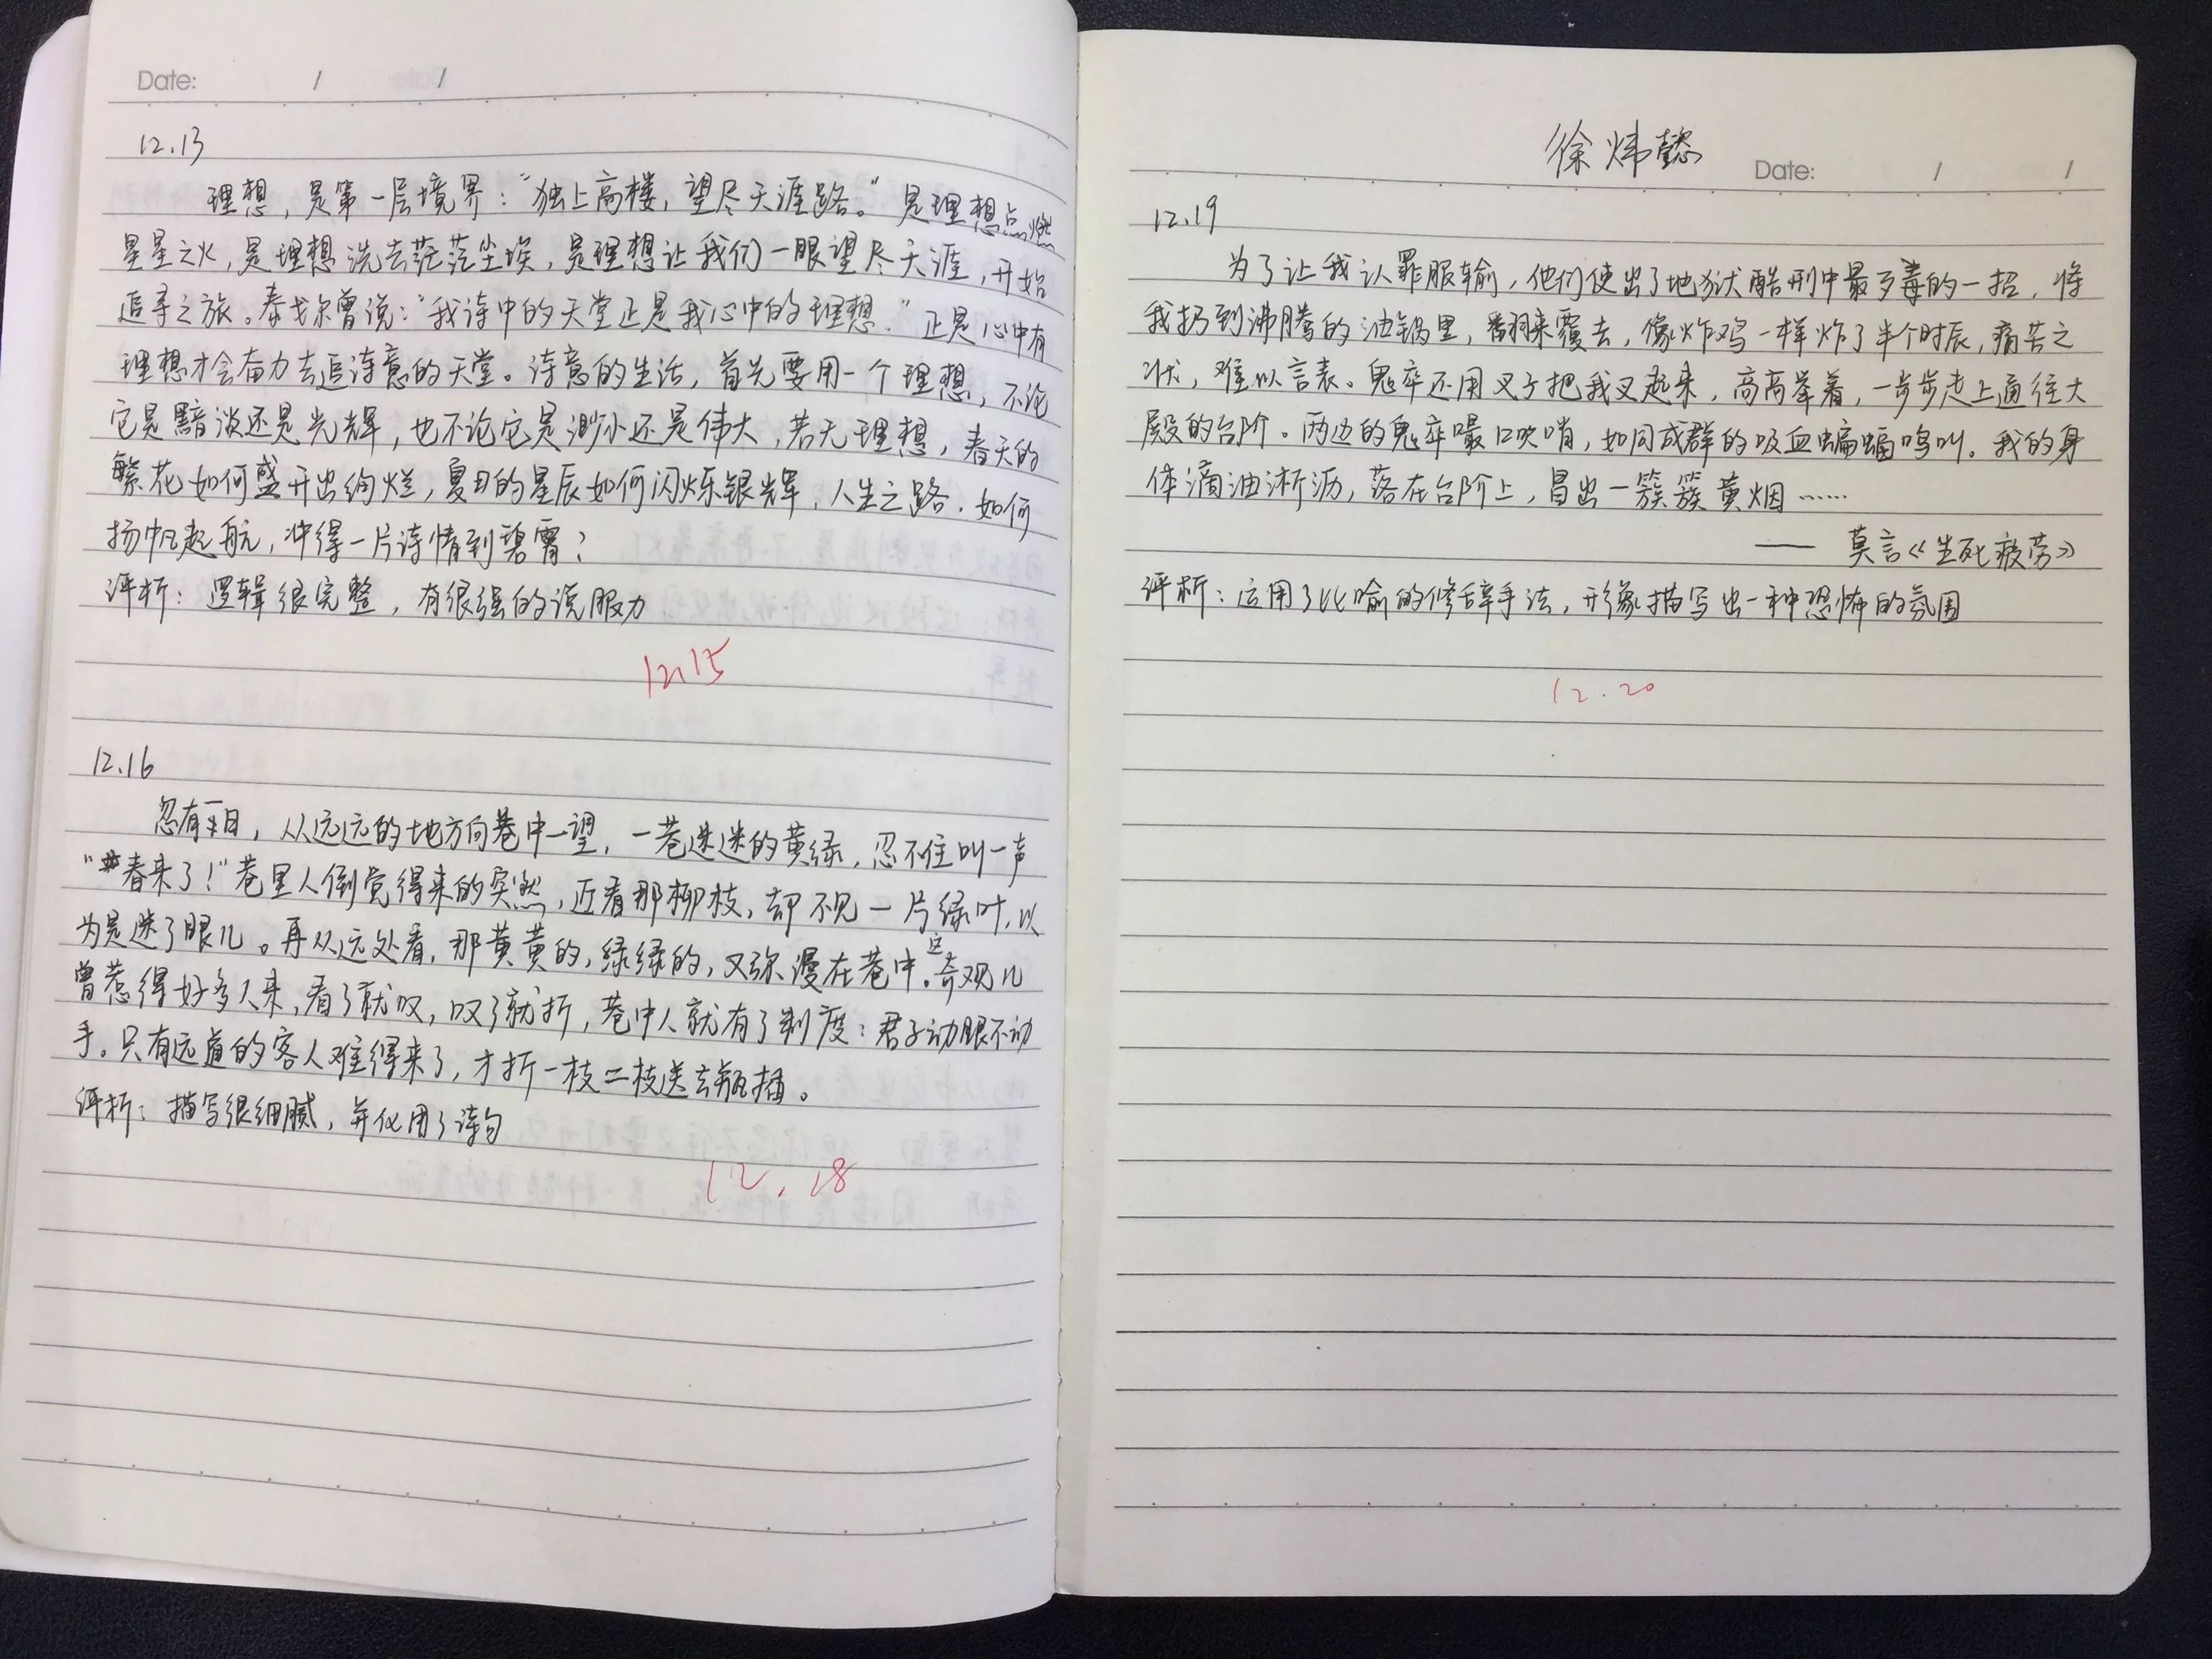 Date: / /
12.13
理想，是第一层境界："独上高楼，望尽天涯路。"是理想点燃
星星之火，是理想洗去茫茫尘埃，是理想让我们一眼望尽天涯，开始
追寻之旅。泰戈尔曾说："我诗中的天堂正是我心中的理想."正是心中有
理想才会奋力去追诗意的天堂。诗意的生活，首先要用一个理想，不论
它是黯淡还是光辉，也不论它是渺小还是伟大，若无理想，春天的
繁花如何盛开出绚烂，夏日的星辰如何闪烁银辉，人生之路，如何
扬帆起航，冲得一片诗情到碧霄？
评析：逻辑很完整，有很强的说服力
12.15
12.16
忽有一日，从远远的地方向巷中一望，一巷迷迷的黄绿，忍不住叫一声
"春来了！"巷里人倒觉得来的突然，近看那柳枝，却不见一片绿叶，以
为是迷了眼儿。再从远处看，那黄黄的，绿绿的，又弥漫在巷中。这奇观儿
曾惹得好多人来，看了就叹，叹了就折，巷中人就有了制度：君子动眼不动
手。只有远道的客人难得来了，才折一枝二枝送去瓶插。
评析：描写很细腻，并化用了诗句
12.18
徐炜懿
Date: / /
12.19
为了让我认罪服输，他们使出了地狱酷刑中最歹毒的一招，将
我扔到沸腾的油锅里，翻来覆去，像炸鸡一样炸了半个时辰，痛苦之
状，难以言表。鬼卒还用叉子把我叉起来，高高举着，一步步走上通往大
殿的台阶。两边的鬼卒嘬口吹哨，如同成群的吸血蝙蝠鸣叫。我的身
体滴油淅沥，落在台阶上，冒出一簇簇黄烟……
—— 莫言《生死疲劳》
评析：运用了比喻的修辞手法，形象描写出一种恐怖的氛围
12.20